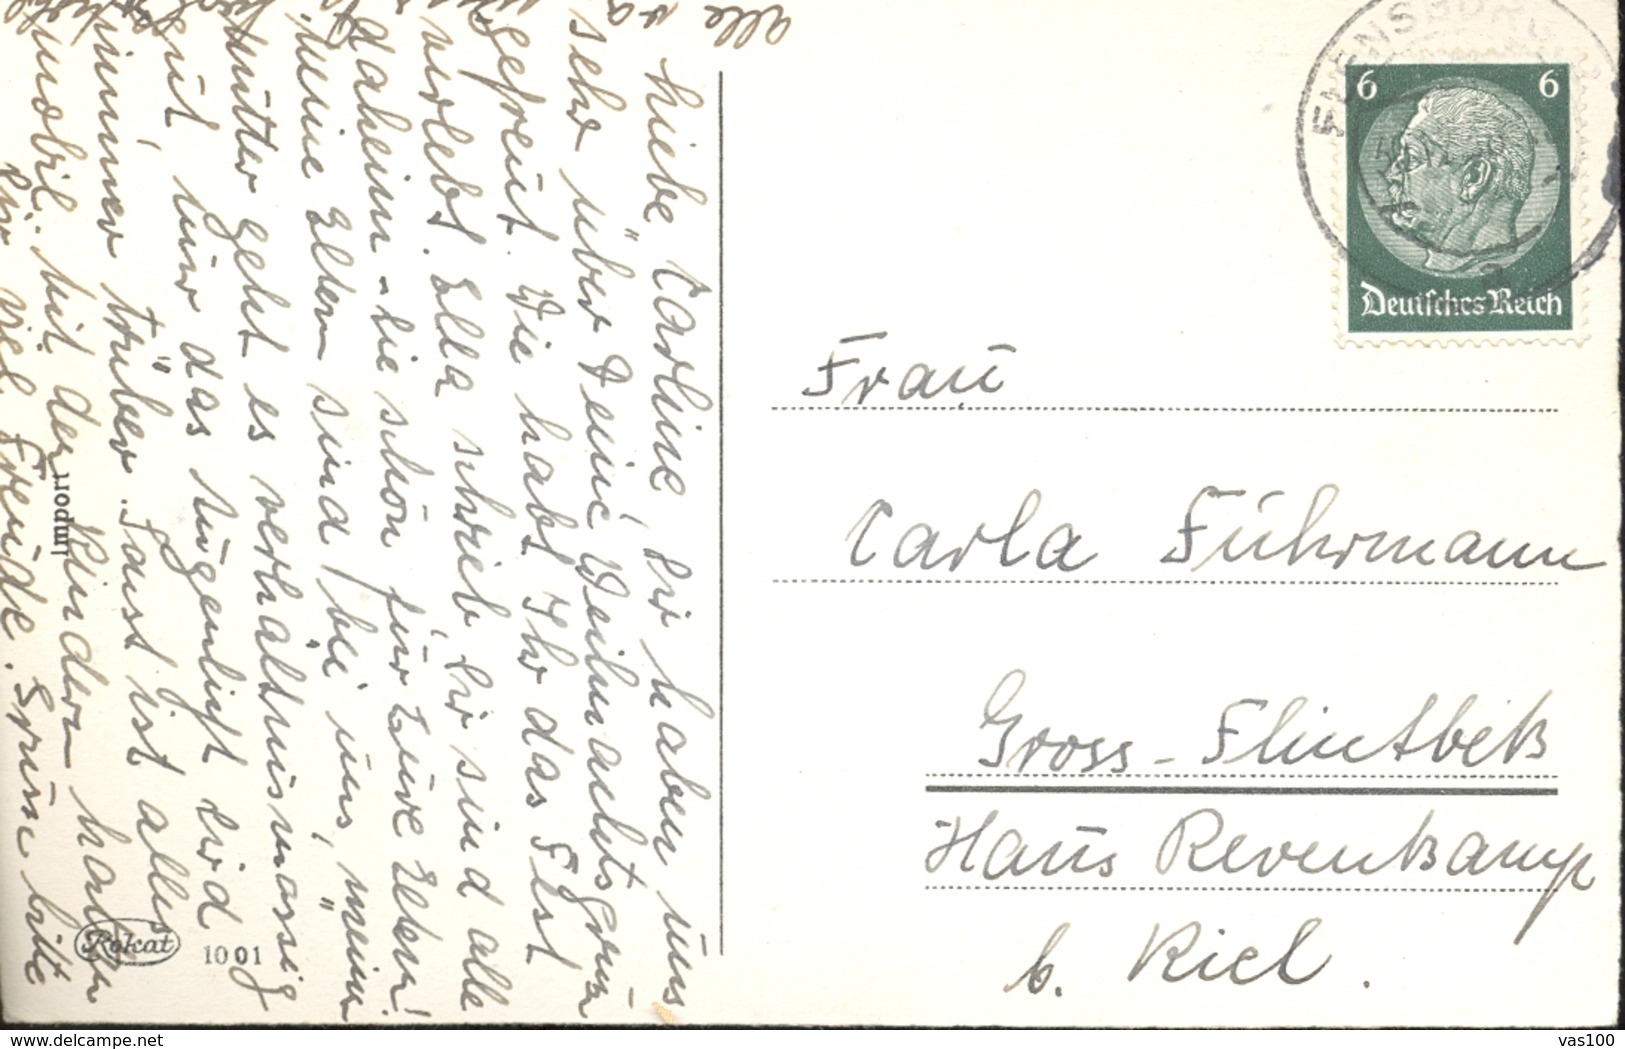 Liebe Carline, wir haben uns
sehr über Deine Weihnachtsgrüße
gefreut. Wie habt Ihr das Fest
verlebt. Ella schrieb, wir sind alle
daheim – wie schön für Eure Eltern!
Meine Eltern sind bei uns,
Mutter geht es verhältnismässig
gut, nur das Augenlicht wird
immer trüber. Sonst ist alles
mobil. Mit den Kindern haben
wir viel Freude. bitte
alle
FLENSBURG
6 6
Deutsches Reich
Frau
Carla Führmann
Gross-Flintbek
Haus Revenkamp
b. Kiel.
Import
Rokat
1001
vas100